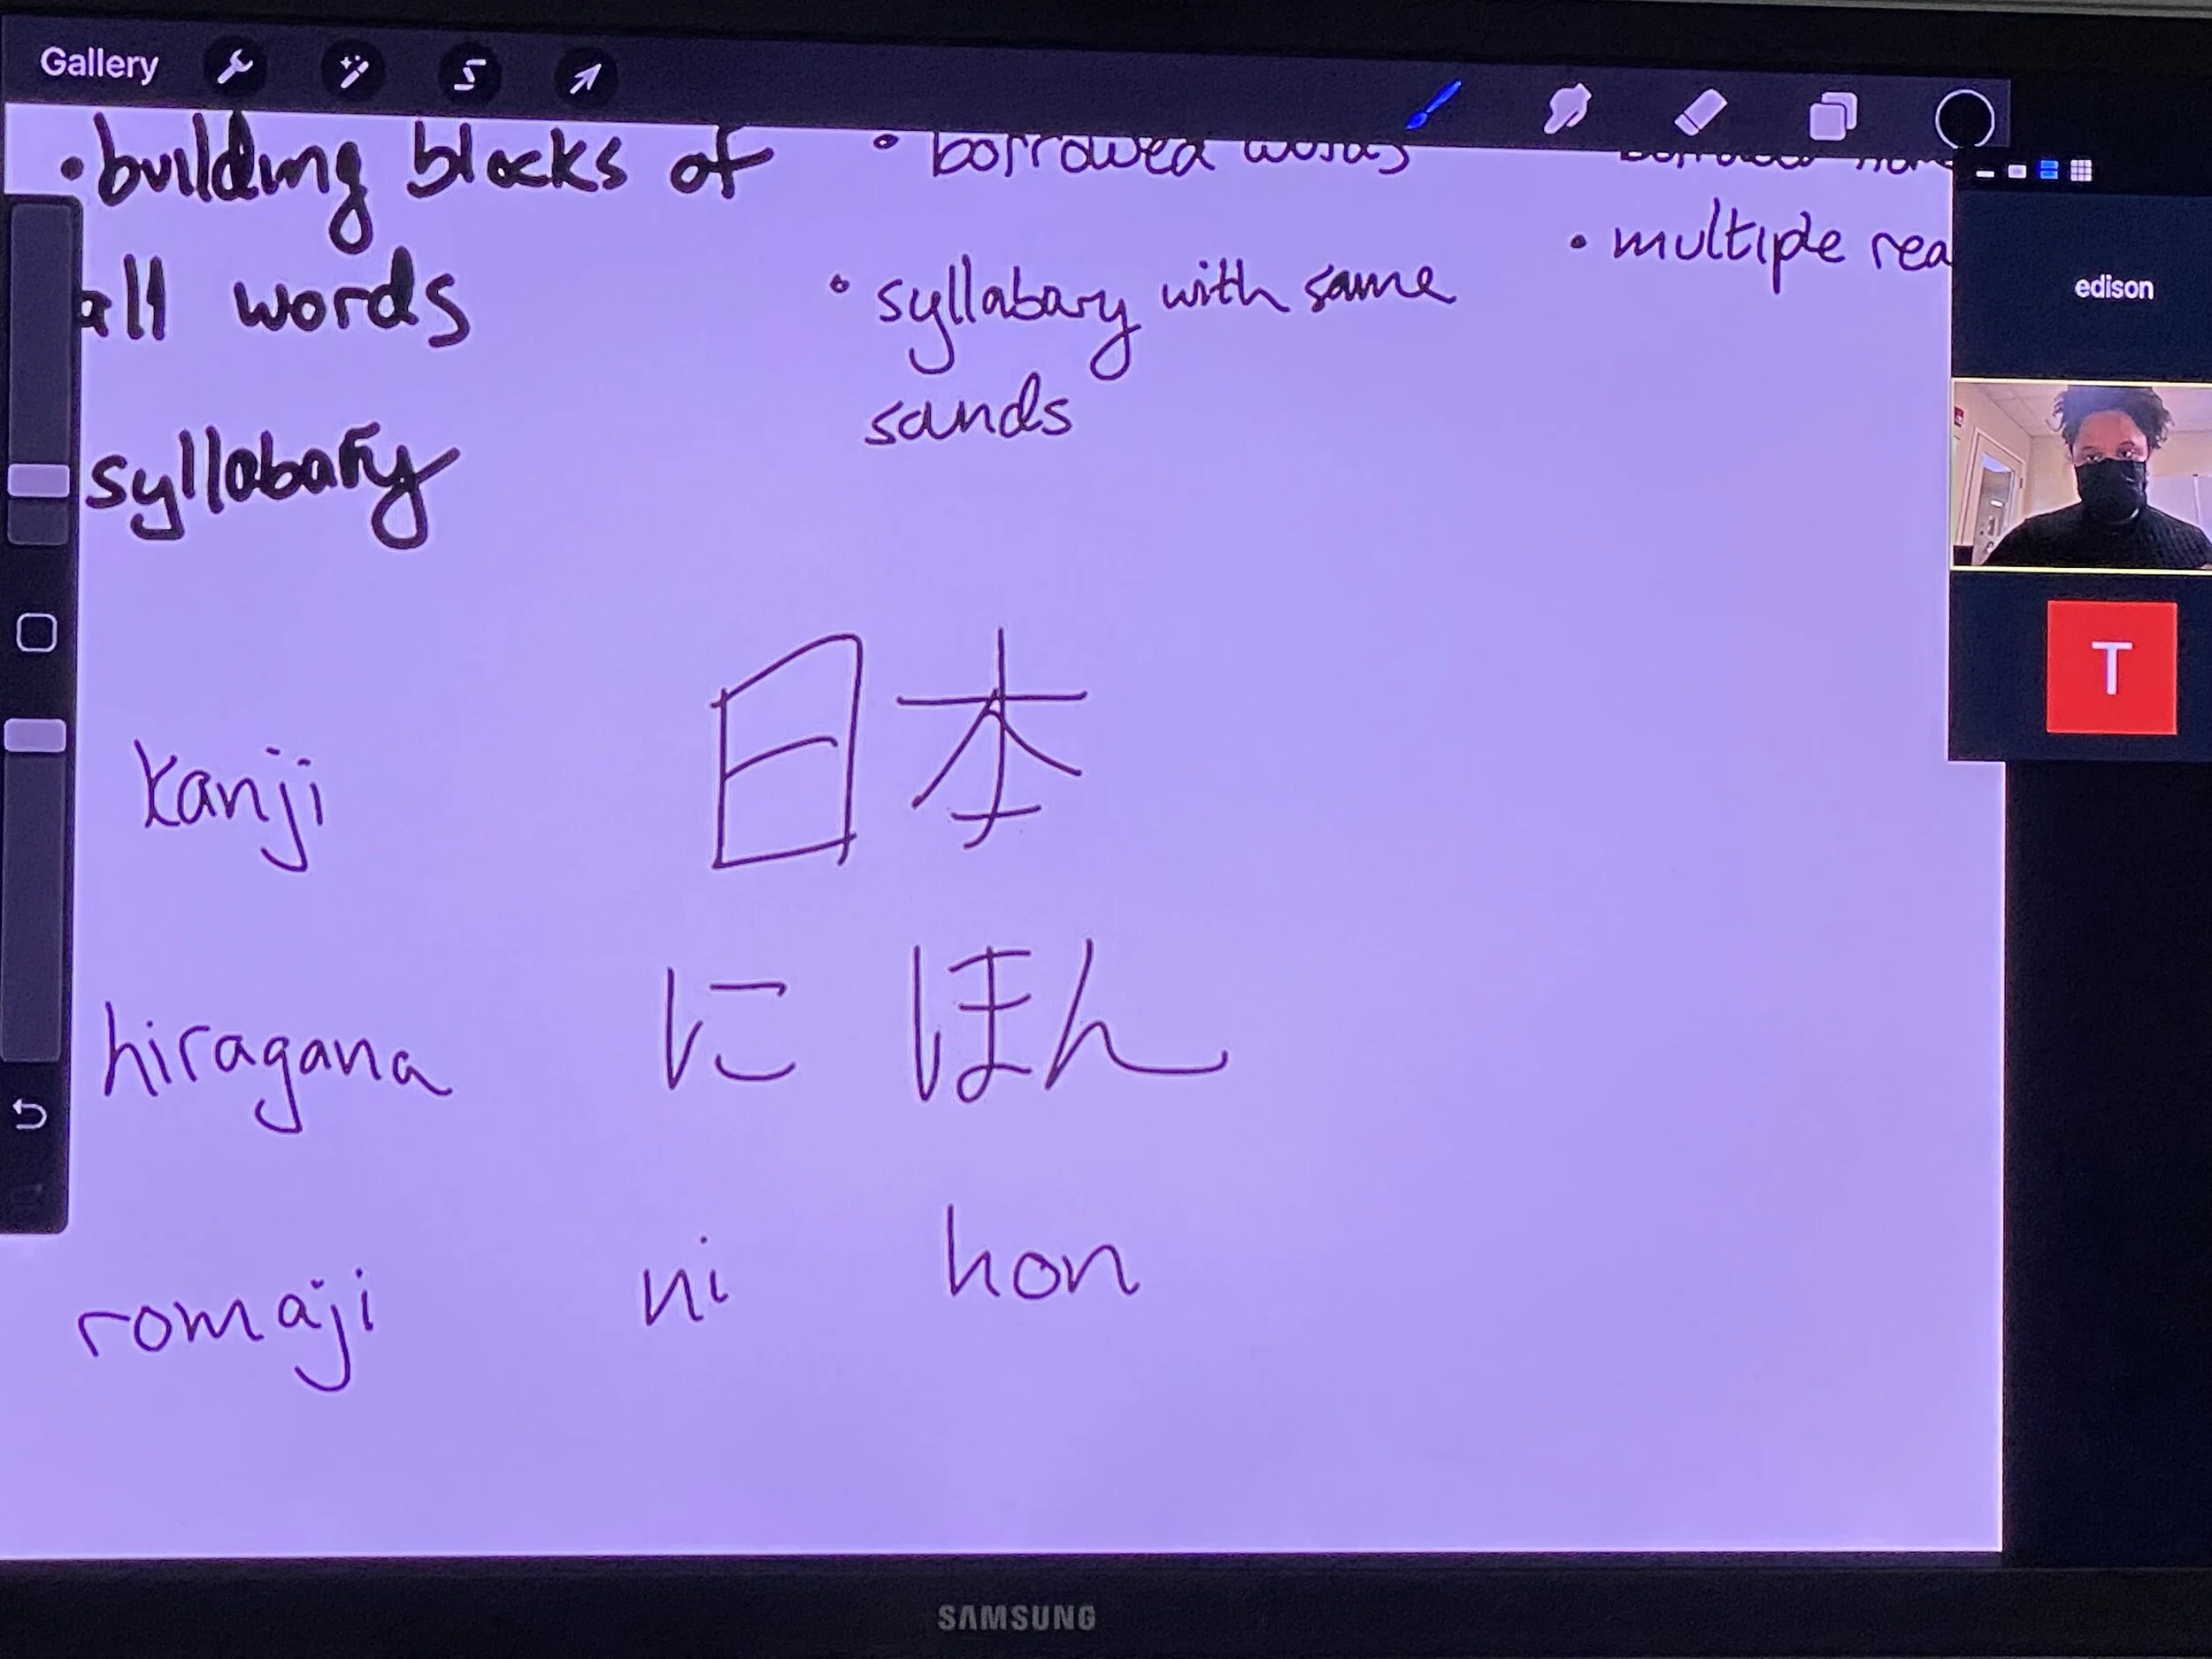 Gallery
• building blocks of
all words
syllabary
• borrowed words
• syllabary with same
sounds
• multiple rea
edison
T
kanji 日本
hiragana に ほん
romaji ni hon
SAMSUNG